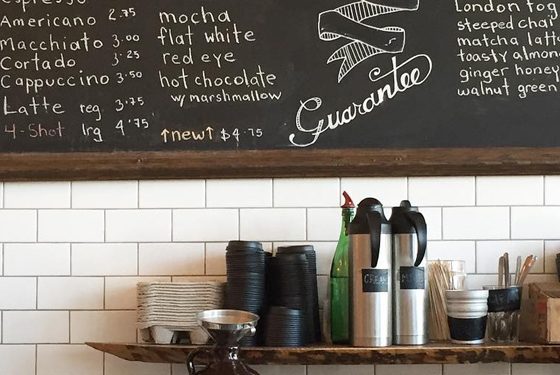 Americano 2.75
Macchiato 3.00
Cortado 3.25
Cappuccino 3.50
Latte reg 3.75
4-Shot lrg 4.75
mocha
flat white
red eye
hot chocolate
w/ marshmallow
↑new↑ $4.75
Guarantee
London fog
steeped chai
matcha latt
toasty almon
ginger honey
walnut green
CREAM